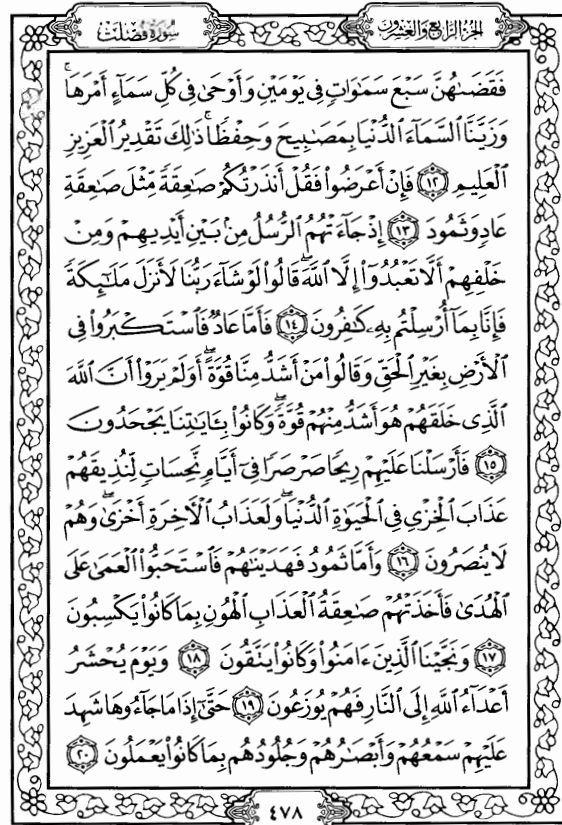 سُورَةُ فُصِّلَتْ
الجُزْءُ الرَّابِعُ وَالعِشْرُونَ
فَقَضَىٰهُنَّ سَبْعَ سَمَٰوَاتٍ فِى يَوْمَيْنِ وَأَوْحَىٰ فِى كُلِّ سَمَآءٍ أَمْرَهَا ۚ
وَزَيَّنَّا ٱلسَّمَآءَ ٱلدُّنْيَا بِمَصَٰبِيحَ وَحِفْظًا ۚ ذَٰلِكَ تَقْدِيرُ ٱلْعَزِيزِ
ٱلْعَلِيمِ ١٢ فَإِنْ أَعْرَضُوا۟ فَقُلْ أَنذَرْتُكُمْ صَٰعِقَةً مِّثْلَ صَٰعِقَةِ
عَادٍ وَثَمُودَ ١٣ إِذْ جَآءَتْهُمُ ٱلرُّسُلُ مِنۢ بَيْنِ أَيْدِيهِمْ وَمِنْ
خَلْفِهِمْ أَلَّا تَعْبُدُوٓا۟ إِلَّا ٱللَّهَ ۖ قَالُوا۟ لَوْ شَآءَ رَبُّنَا لَأَنزَلَ مَلَٰٓئِكَةً
فَإِنَّا بِمَآ أُرْسِلْتُم بِهِۦ كَٰفِرُونَ ١٤ فَأَمَّا عَادٌ فَٱسْتَكْبَرُوا۟ فِى
ٱلْأَرْضِ بِغَيْرِ ٱلْحَقِّ وَقَالُوا۟ مَنْ أَشَدُّ مِنَّا قُوَّةً ۖ أَوَلَمْ يَرَوْا۟ أَنَّ ٱللَّهَ
ٱلَّذِى خَلَقَهُمْ هُوَ أَشَدُّ مِنْهُمْ قُوَّةً ۖ وَكَانُوا۟ بِـَٔايَٰتِنَا يَجْحَدُونَ
١٥ فَأَرْسَلْنَا عَلَيْهِمْ رِيحًا صَرْصَرًا فِىٓ أَيَّامٍ نَّحِسَاتٍ لِّنُذِيقَهُمْ
عَذَابَ ٱلْخِزْىِ فِى ٱلْحَيَوٰةِ ٱلدُّنْيَا ۖ وَلَعَذَابُ ٱلْءَاخِرَةِ أَخْزَىٰ ۖ وَهُمْ
لَا يُنصَرُونَ ١٦ وَأَمَّا ثَمُودُ فَهَدَيْنَٰهُمْ فَٱسْتَحَبُّوا۟ ٱلْعَمَىٰ عَلَى
ٱلْهُدَىٰ فَأَخَذَتْهُمْ صَٰعِقَةُ ٱلْعَذَابِ ٱلْهُونِ بِمَا كَانُوا۟ يَكْسِبُونَ
١٧ وَنَجَّيْنَا ٱلَّذِينَ ءَامَنُوا۟ وَكَانُوا۟ يَتَّقُونَ ١٨ وَيَوْمَ يُحْشَرُ
أَعْدَآءُ ٱللَّهِ إِلَى ٱلنَّارِ فَهُمْ يُوزَعُونَ ١٩ حَتَّىٰٓ إِذَا مَا جَآءُوهَا شَهِدَ
عَلَيْهِمْ سَمْعُهُمْ وَأَبْصَٰرُهُمْ وَجُلُودُهُم بِمَا كَانُوا۟ يَعْمَلُونَ ٢٠
٤٧٨